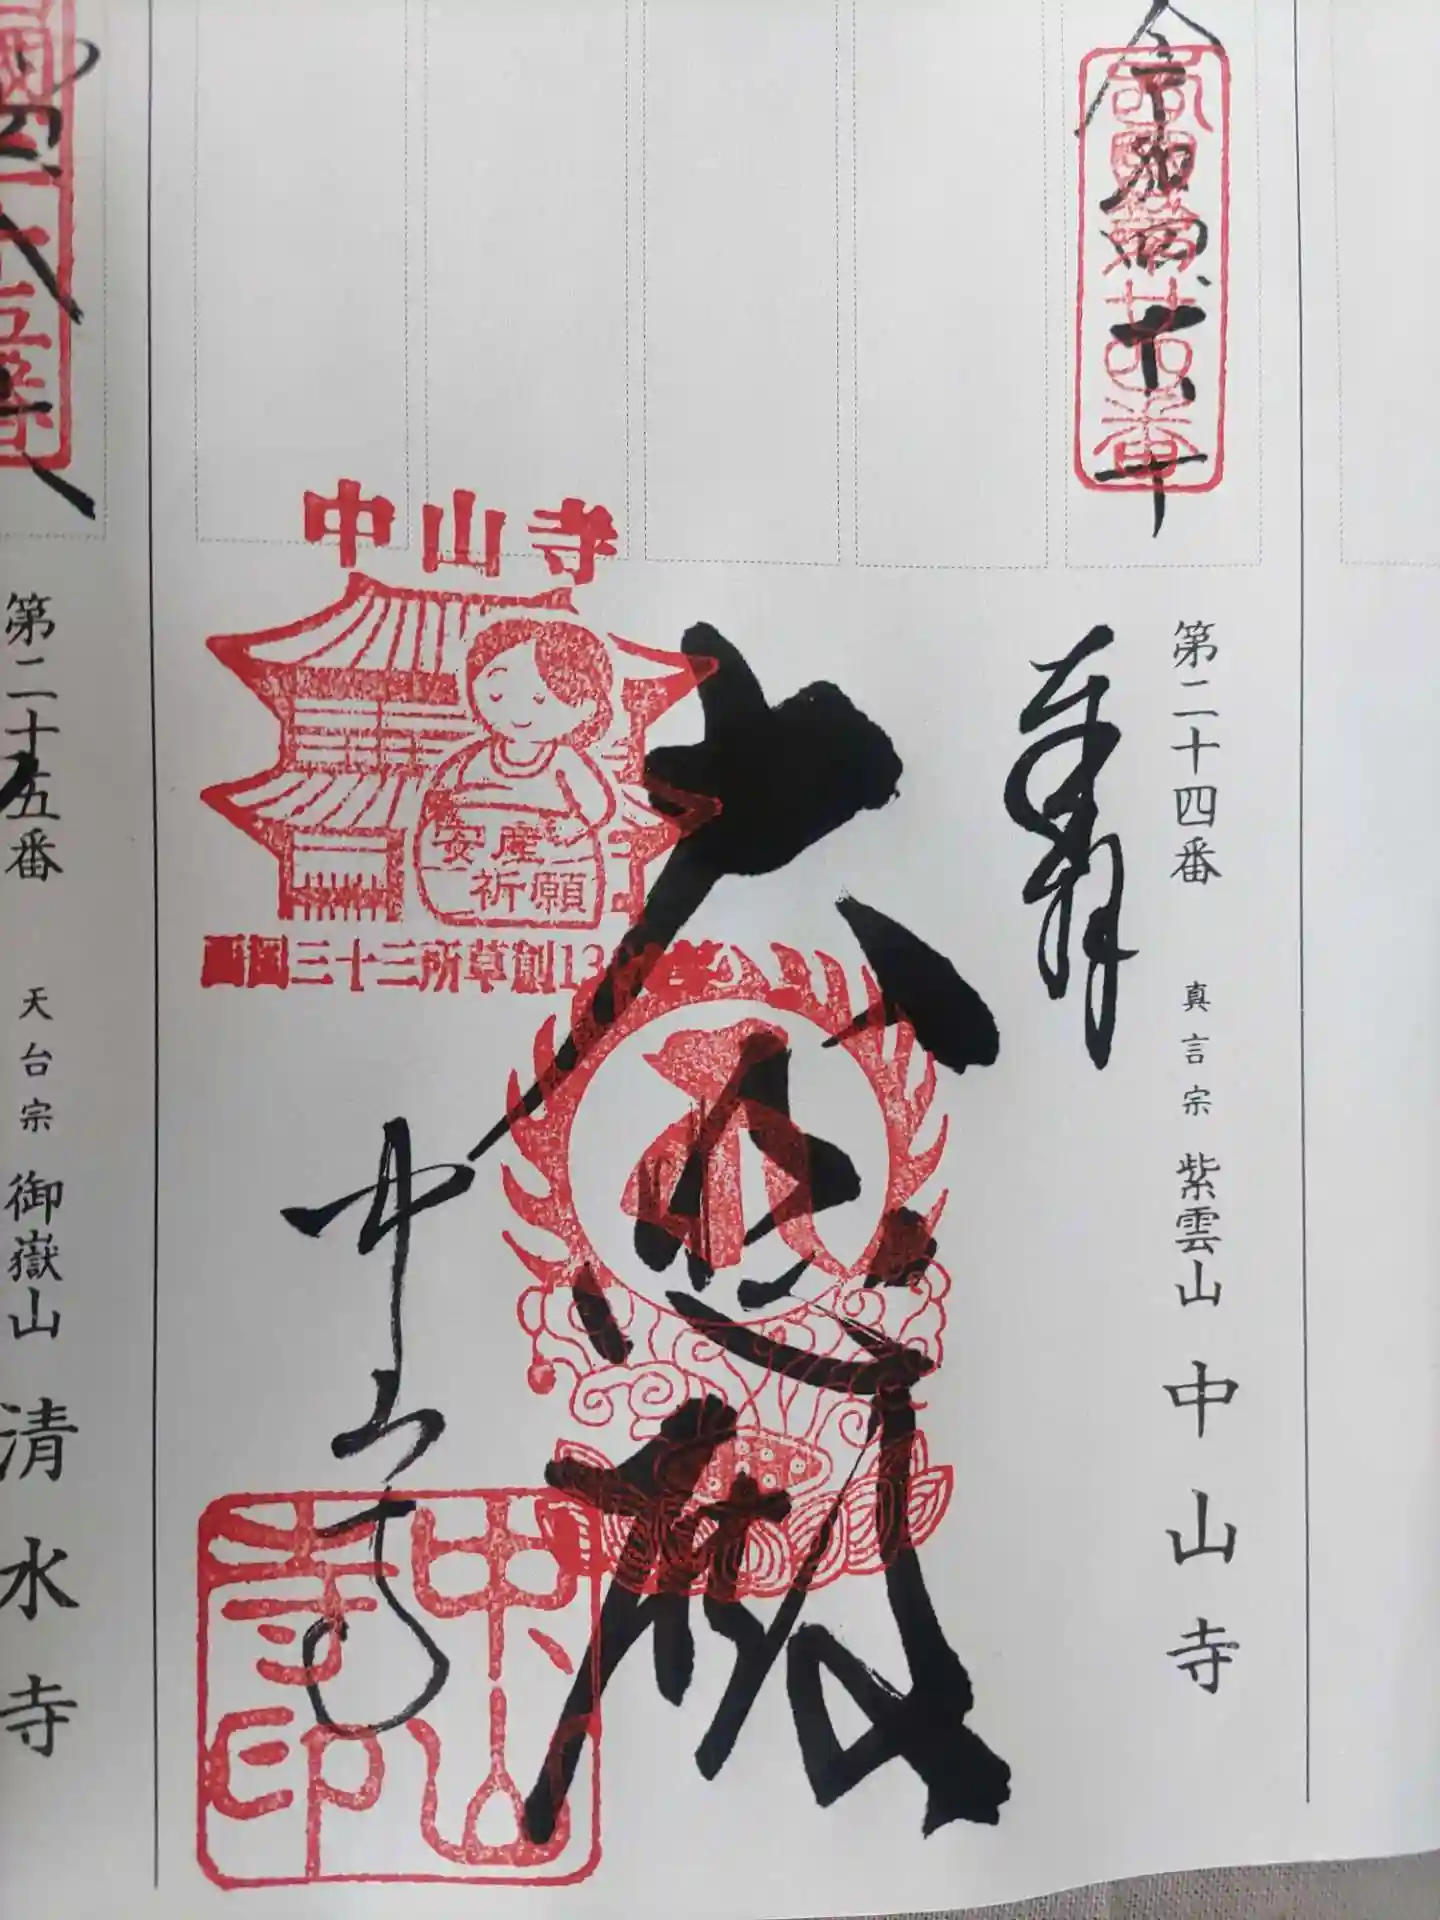 西國第廿四番
第二十四番 真言宗 紫雲山 中山寺
奉拝
大悲殿
中山寺
中山寺
安産
祈願
西国三十三所草創13
中山寺印
第二十五番 天台宗 御嶽山 清水寺